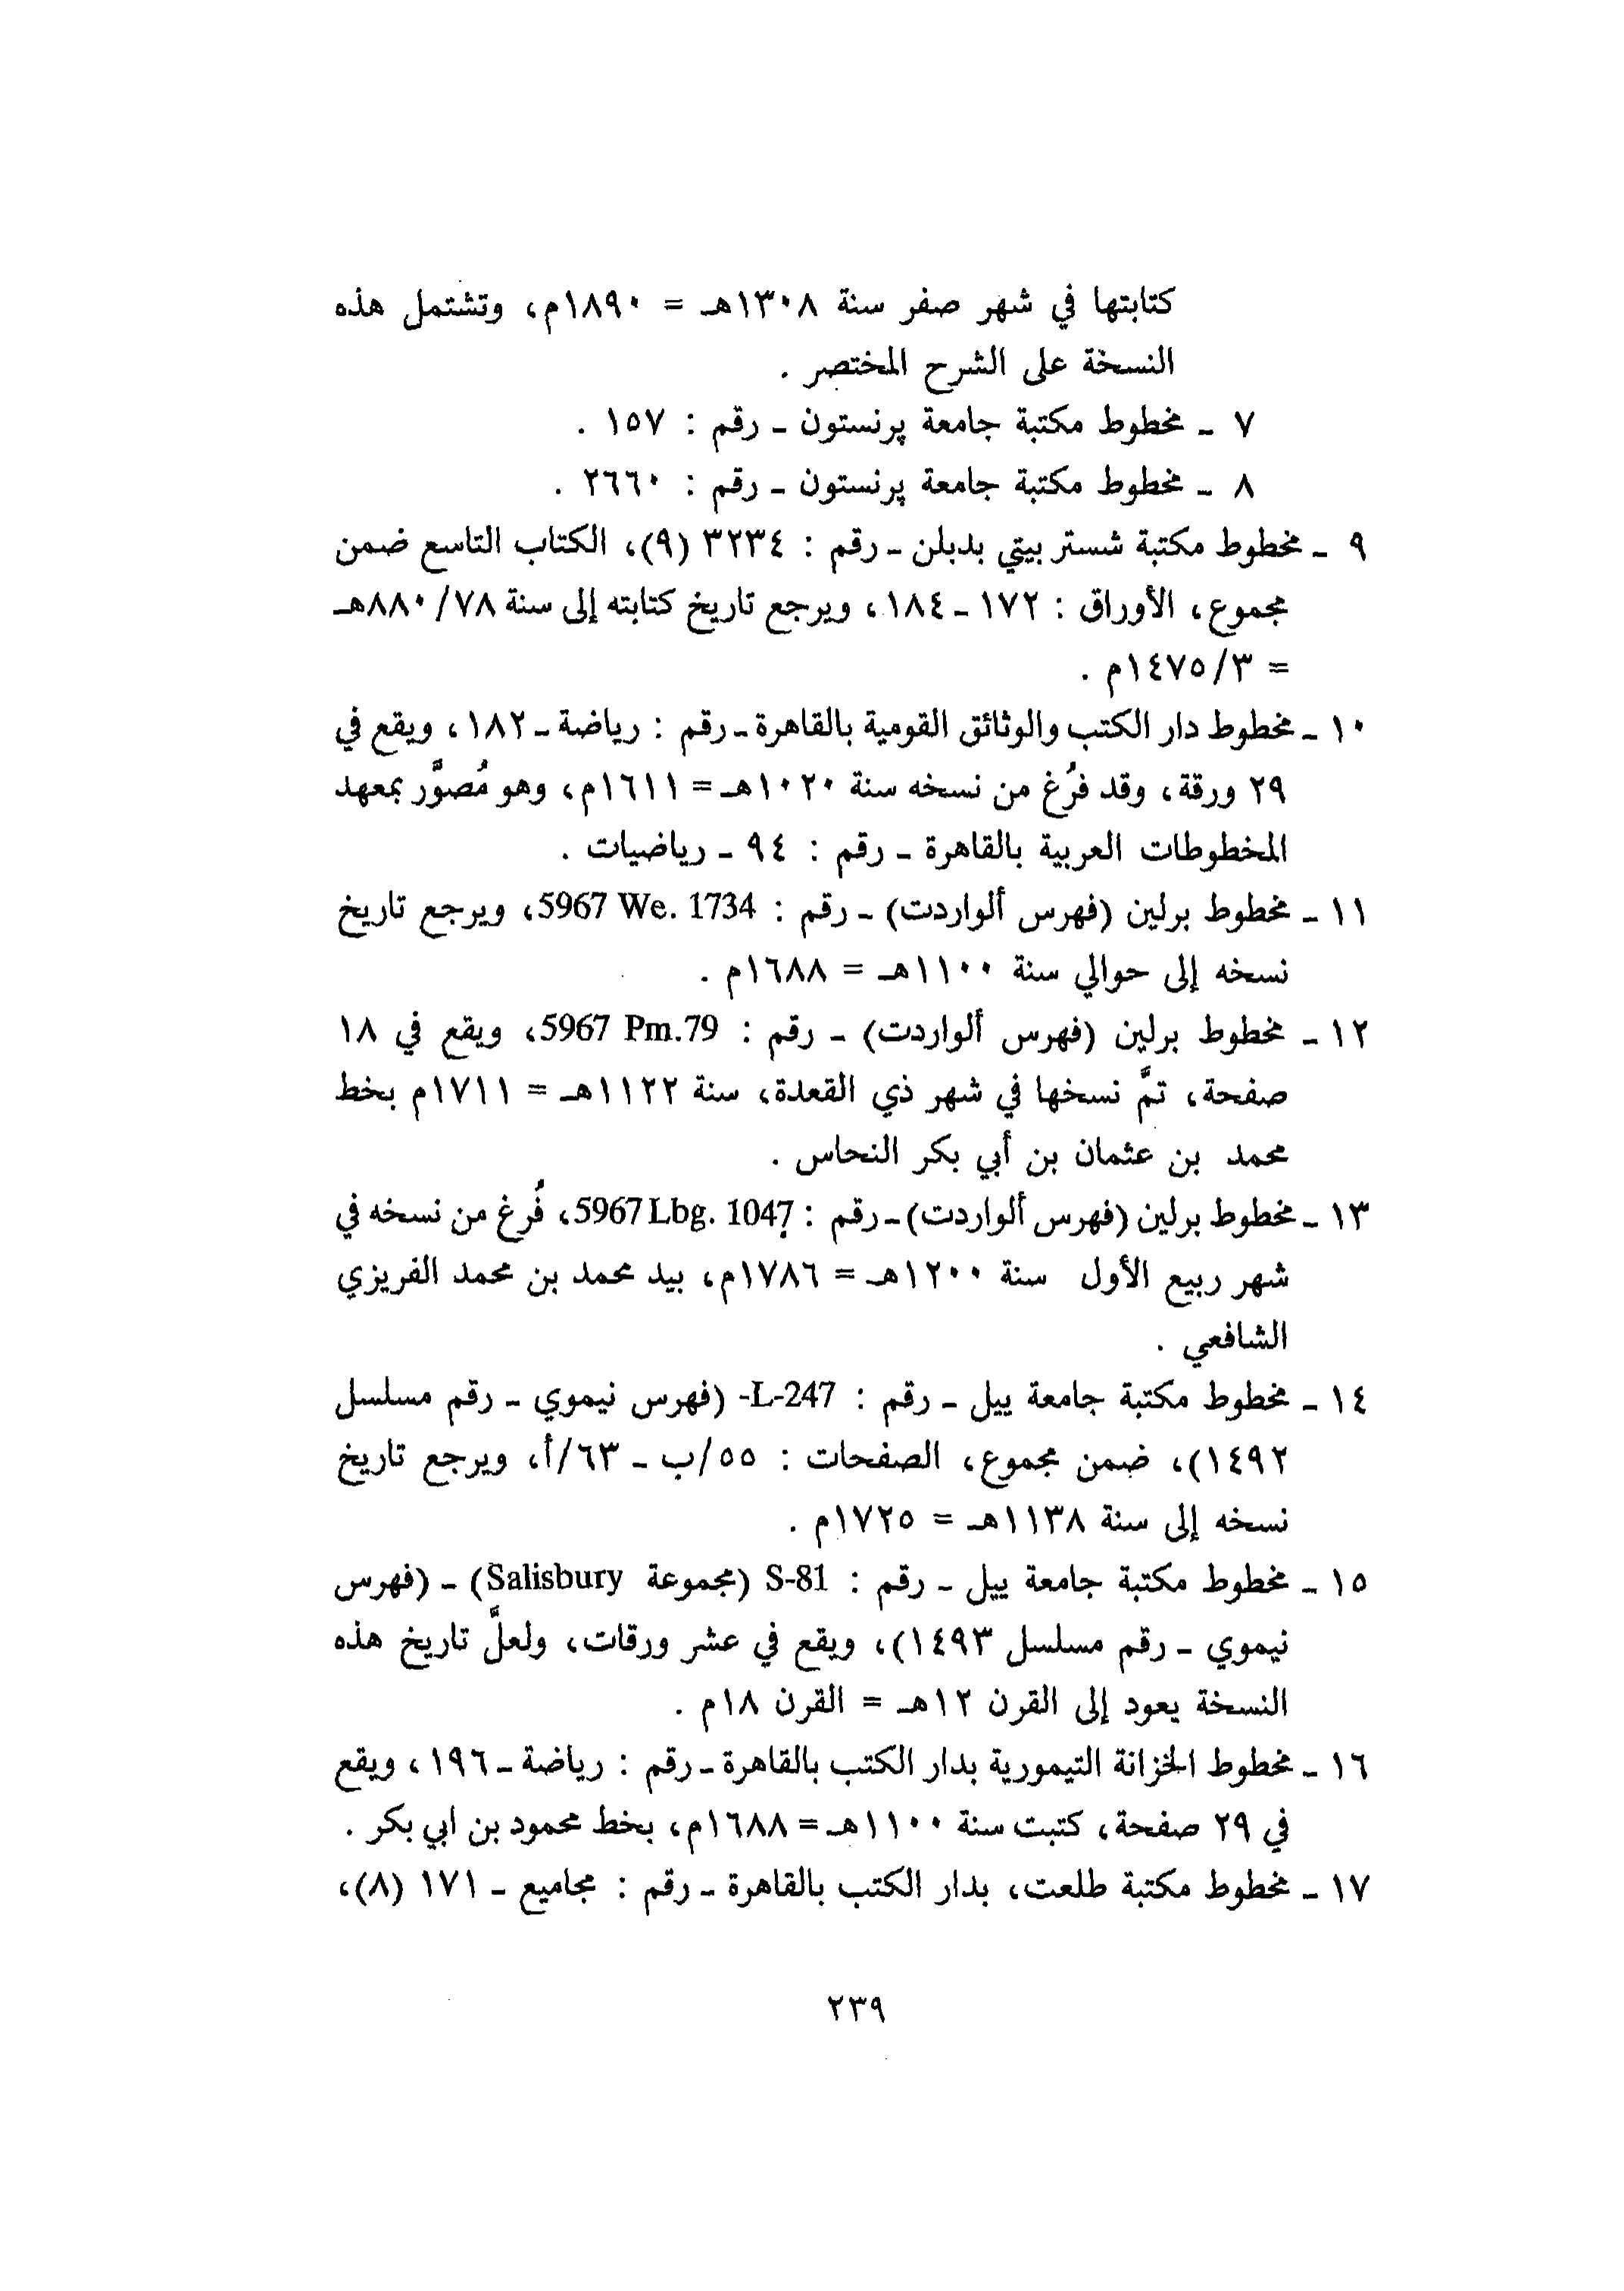 كتابتها في شهر صفر سنة ١٣٠٨هـ = ١٨٩٠م، وتشتمل هذه
النسخة على الشرح المختصر .
٧ ـ مخطوط مكتبة جامعة پرنستون ـ رقم : ١٥٧ .
٨ ـ مخطوط مكتبة جامعة پرنستون ـ رقم : ٢٦٦٠ .
٩ ـ مخطوط مكتبة شستر بيتي بدبلن ـ رقم : ٣٢٣٤ (٩)، الكتاب التاسع ضمن
مجموع، الأوراق : ١٧٢ ـ ١٨٤، ويرجع تاريخ كتابته إلى سنة ٧٨/ ٨٨٠هـ
= ١٤٧٥/٣م .
١٠ ـ مخطوط دار الكتب والوثائق القومية بالقاهرة ـ رقم : رياضة ـ ١٨٢، ويقع في
٢٩ ورقة، وقد فُرغ من نسخه سنة ١٠٢٠هـ = ١٦١١م، وهو مُصوَّر بمعهد
المخطوطات العربية بالقاهرة ـ رقم : ٩٤ ـ رياضيات .
١١ ـ مخطوط برلين (فهرس ألواردت) ـ رقم : 5967 We. 1734، ويرجع تاريخ
نسخه إلى حوالي سنة ١١٠٠هـ = ١٦٨٨م .
١٢ ـ مخطوط برلين (فهرس ألواردت) ـ رقم : 5967 Pm.79، ويقع في ١٨
صفحة، تمَّ نسخها في شهر ذي القعدة، سنة ١١٢٢هـ = ١٧١١م بخط
محمد بن عثمان بن أبي بكر النحاس .
١٣ ـ مخطوط برلين (فهرس ألواردت) ـ رقم : 5967 Lbg. 1047، فُرغ من نسخه في
شهر ربيع الأول سنة ١٢٠٠هـ = ١٧٨٦م، بيد محمد بن محمد الفريزي
الشافعي .
١٤ ـ مخطوط مكتبة جامعة ييل ـ رقم : L-247- (فهرس نيموي ـ رقم مسلسل
١٤٩٢)، ضمن مجموع، الصفحات : ٥٥/ب ـ ٦٣/أ، ويرجع تاريخ
نسخه إلى سنة ١١٣٨هـ = ١٧٢٥م .
١٥ ـ مخطوط مكتبة جامعة ييل ـ رقم : S-81 (مجموعة Salisbury) ـ (فهرس
نيموي ـ رقم مسلسل ١٤٩٣)، ويقع في عشر ورقات، ولعلَّ تاريخ هذه
النسخة يعود إلى القرن ١٢هـ = القرن ١٨م .
١٦ ـ مخطوط الخزانة التيمورية بدار الكتب بالقاهرة ـ رقم : رياضة ـ ١٩٦، ويقع
في ٢٩ صفحة، كتبت سنة ١١٠٠هـ = ١٦٨٨م، بخط محمود بن ابي بكر .
١٧ ـ مخطوط مكتبة طلعت، بدار الكتب بالقاهرة ـ رقم : مجاميع ـ ١٧١ (٨)،
٢٣٩